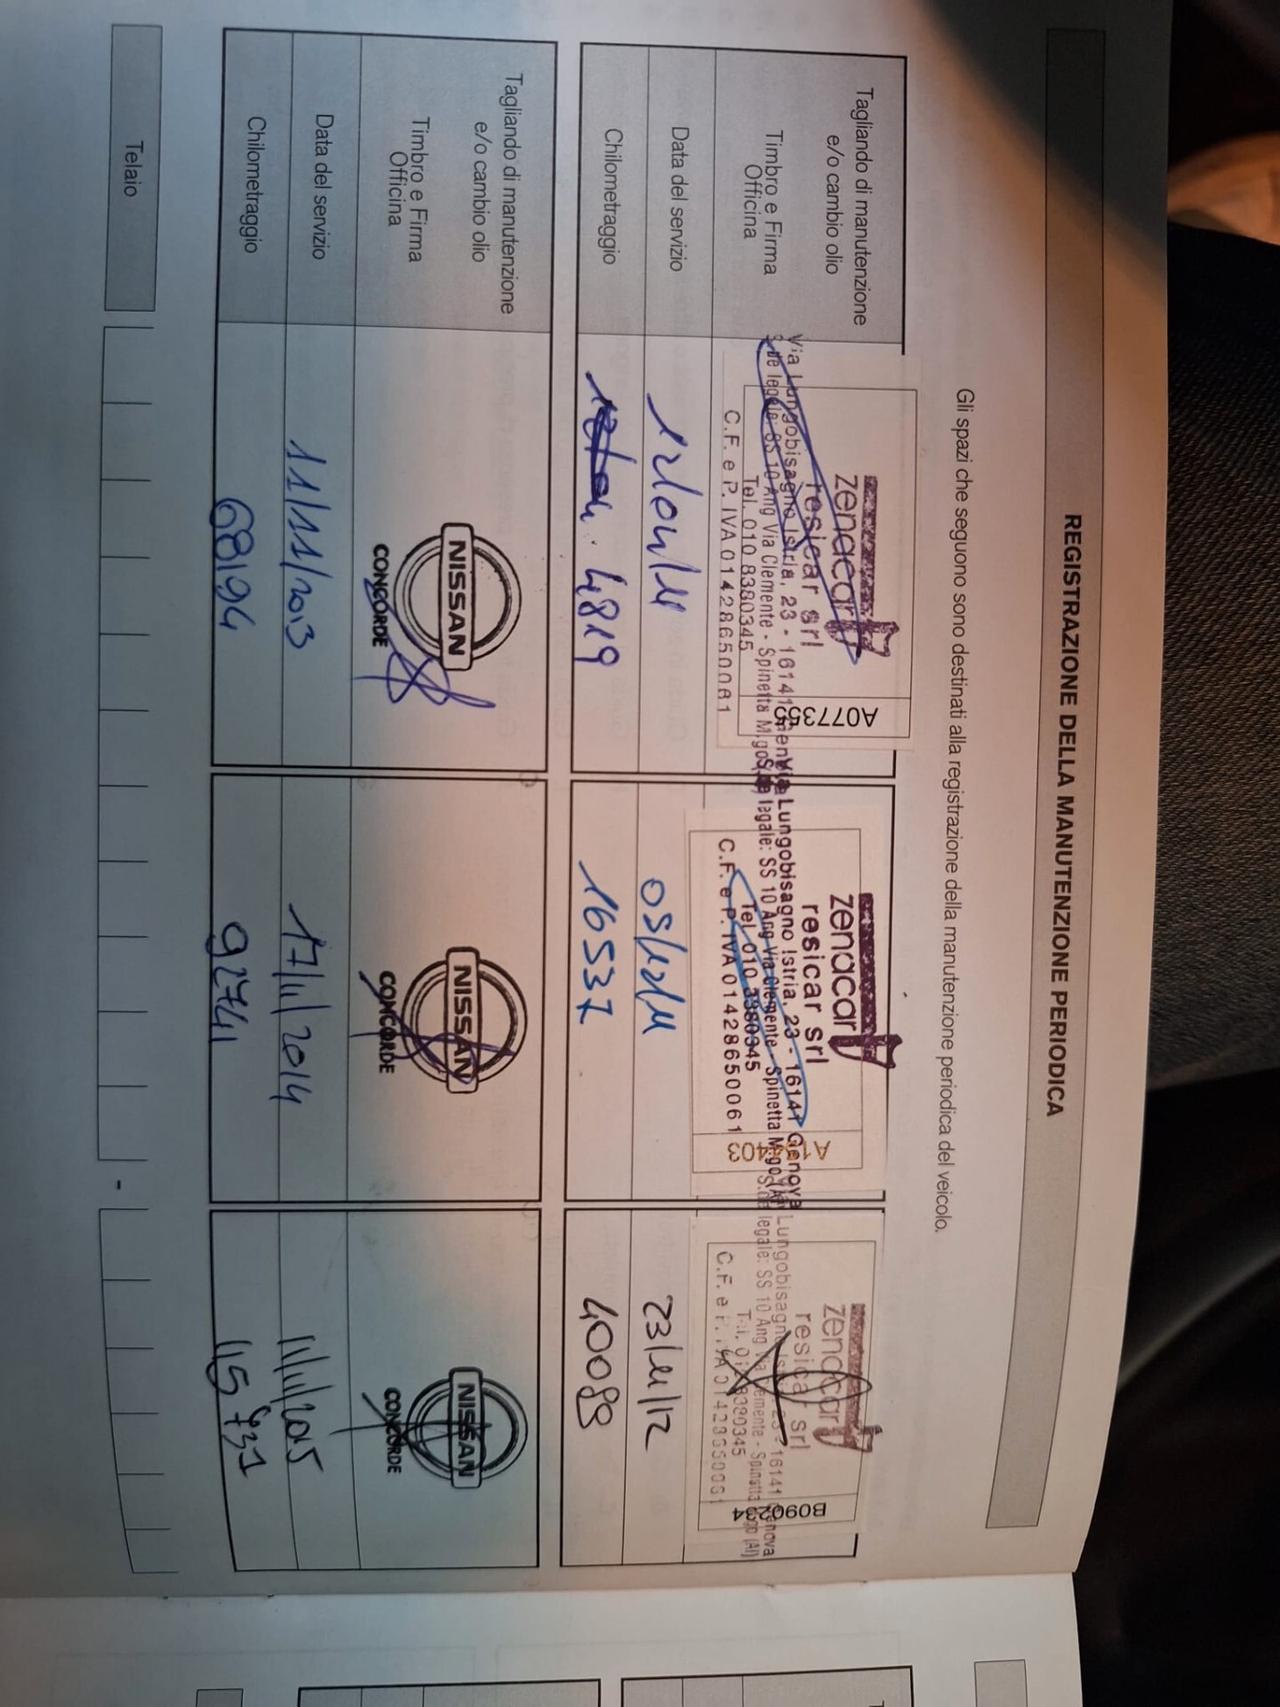 REGISTRAZIONE DELLA MANUTENZIONE PERIODICA
Gli spazi che seguono sono destinati alla registrazione della manutenzione periodica del veicolo.
Tagliando di manutenzione
e/o cambio olio
Timbro e Firma
Officina
zenacar
resicar srl
Via Lungobisagno Istria, 23 - 16141
Sede legale: SS 10 Ang Via Clemente - Spinetta M.go
Tel. 010 8380345
C.F. e P. IVA 01428650061
A077355
zenacar
resicar srl
Via Lungobisagno Istria, 23 - 16141 Genova
legale: SS 10 Ang Via Clemente - Spinetta M.go (Al)
Tel. 010 8380345
C.F. e P. IVA 01428650061
zenacar
resicar srl
Lungobisagno 16141 Genova
legale: SS 10 Ang Via Clemente - Spinetta M.go (Al)
Tel. 010 8380345
C.F. e P. IVA 01428650061
Data del servizio
23/11/12
Chilometraggio
4819
16537
40089
Tagliando di manutenzione
e/o cambio olio
Timbro e Firma
Officina
NISSAN
CONCORDE
NISSAN
CONCORDE
NISSAN
CONCORDE
Data del servizio
11/11/2013
17/11/2014
11/11/2015
Chilometraggio
68194
92741
115731
Telaio
-